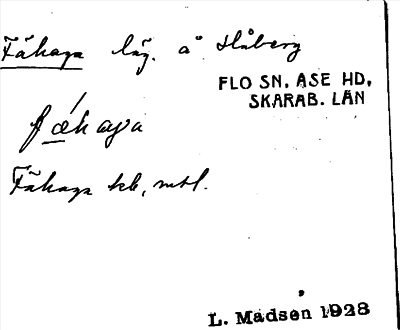 Fähaga läg. å Håberg
FLO SN. ÅSE HD,
SKARAB. LÄN
fǽhaga
Fähaga kb, mtl.
L. Madsen 1928